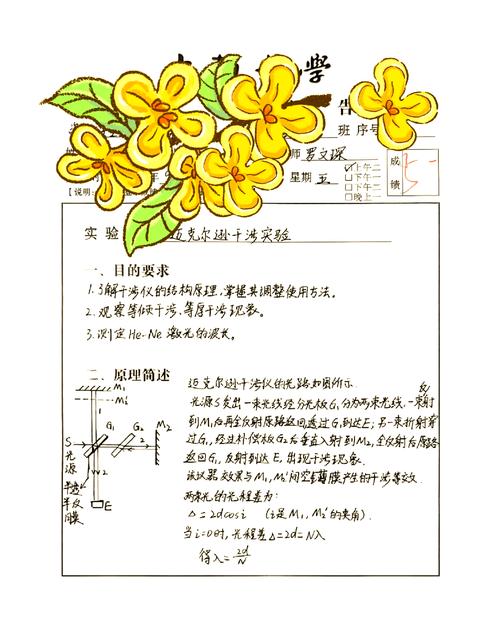 学
告
班 序号
师 罗文琛
成绩
上午二
星期 五
下午一
下午二
晚上一
【说明:
实 验
迈克尔逊干涉实验
一、目的要求
1.了解干涉仪的结构原理,掌握其调整使用方法。
2.观察等倾干涉、等厚干涉现象。
3.测定He-Ne 激光的波长。
二、原理简述
迈克尔逊干涉仪的光路如图所示.
光源S发出一束光线经分光板G₁分为两束光线.一束反射
到M₁后再全反射原路返回透过G₁到达E;另一束折射穿
过G₁,经过补偿板G₂后垂直入射到M₂,全反射后原路
返回G₁,反射到达E,出现干涉现象.
该仪器效果与M₁、M₂'间空气薄膜产生的干涉等效.
两束光的光程差为:
Δ=2dcosi (i是M₁、M₂'的夹角).
当i=0时,光程差Δ=2d=Nλ
得λ=2d/N
M₁
M₂'
1
G₁
G₂
M₂
S
光源
2
2
半透半反膜
E